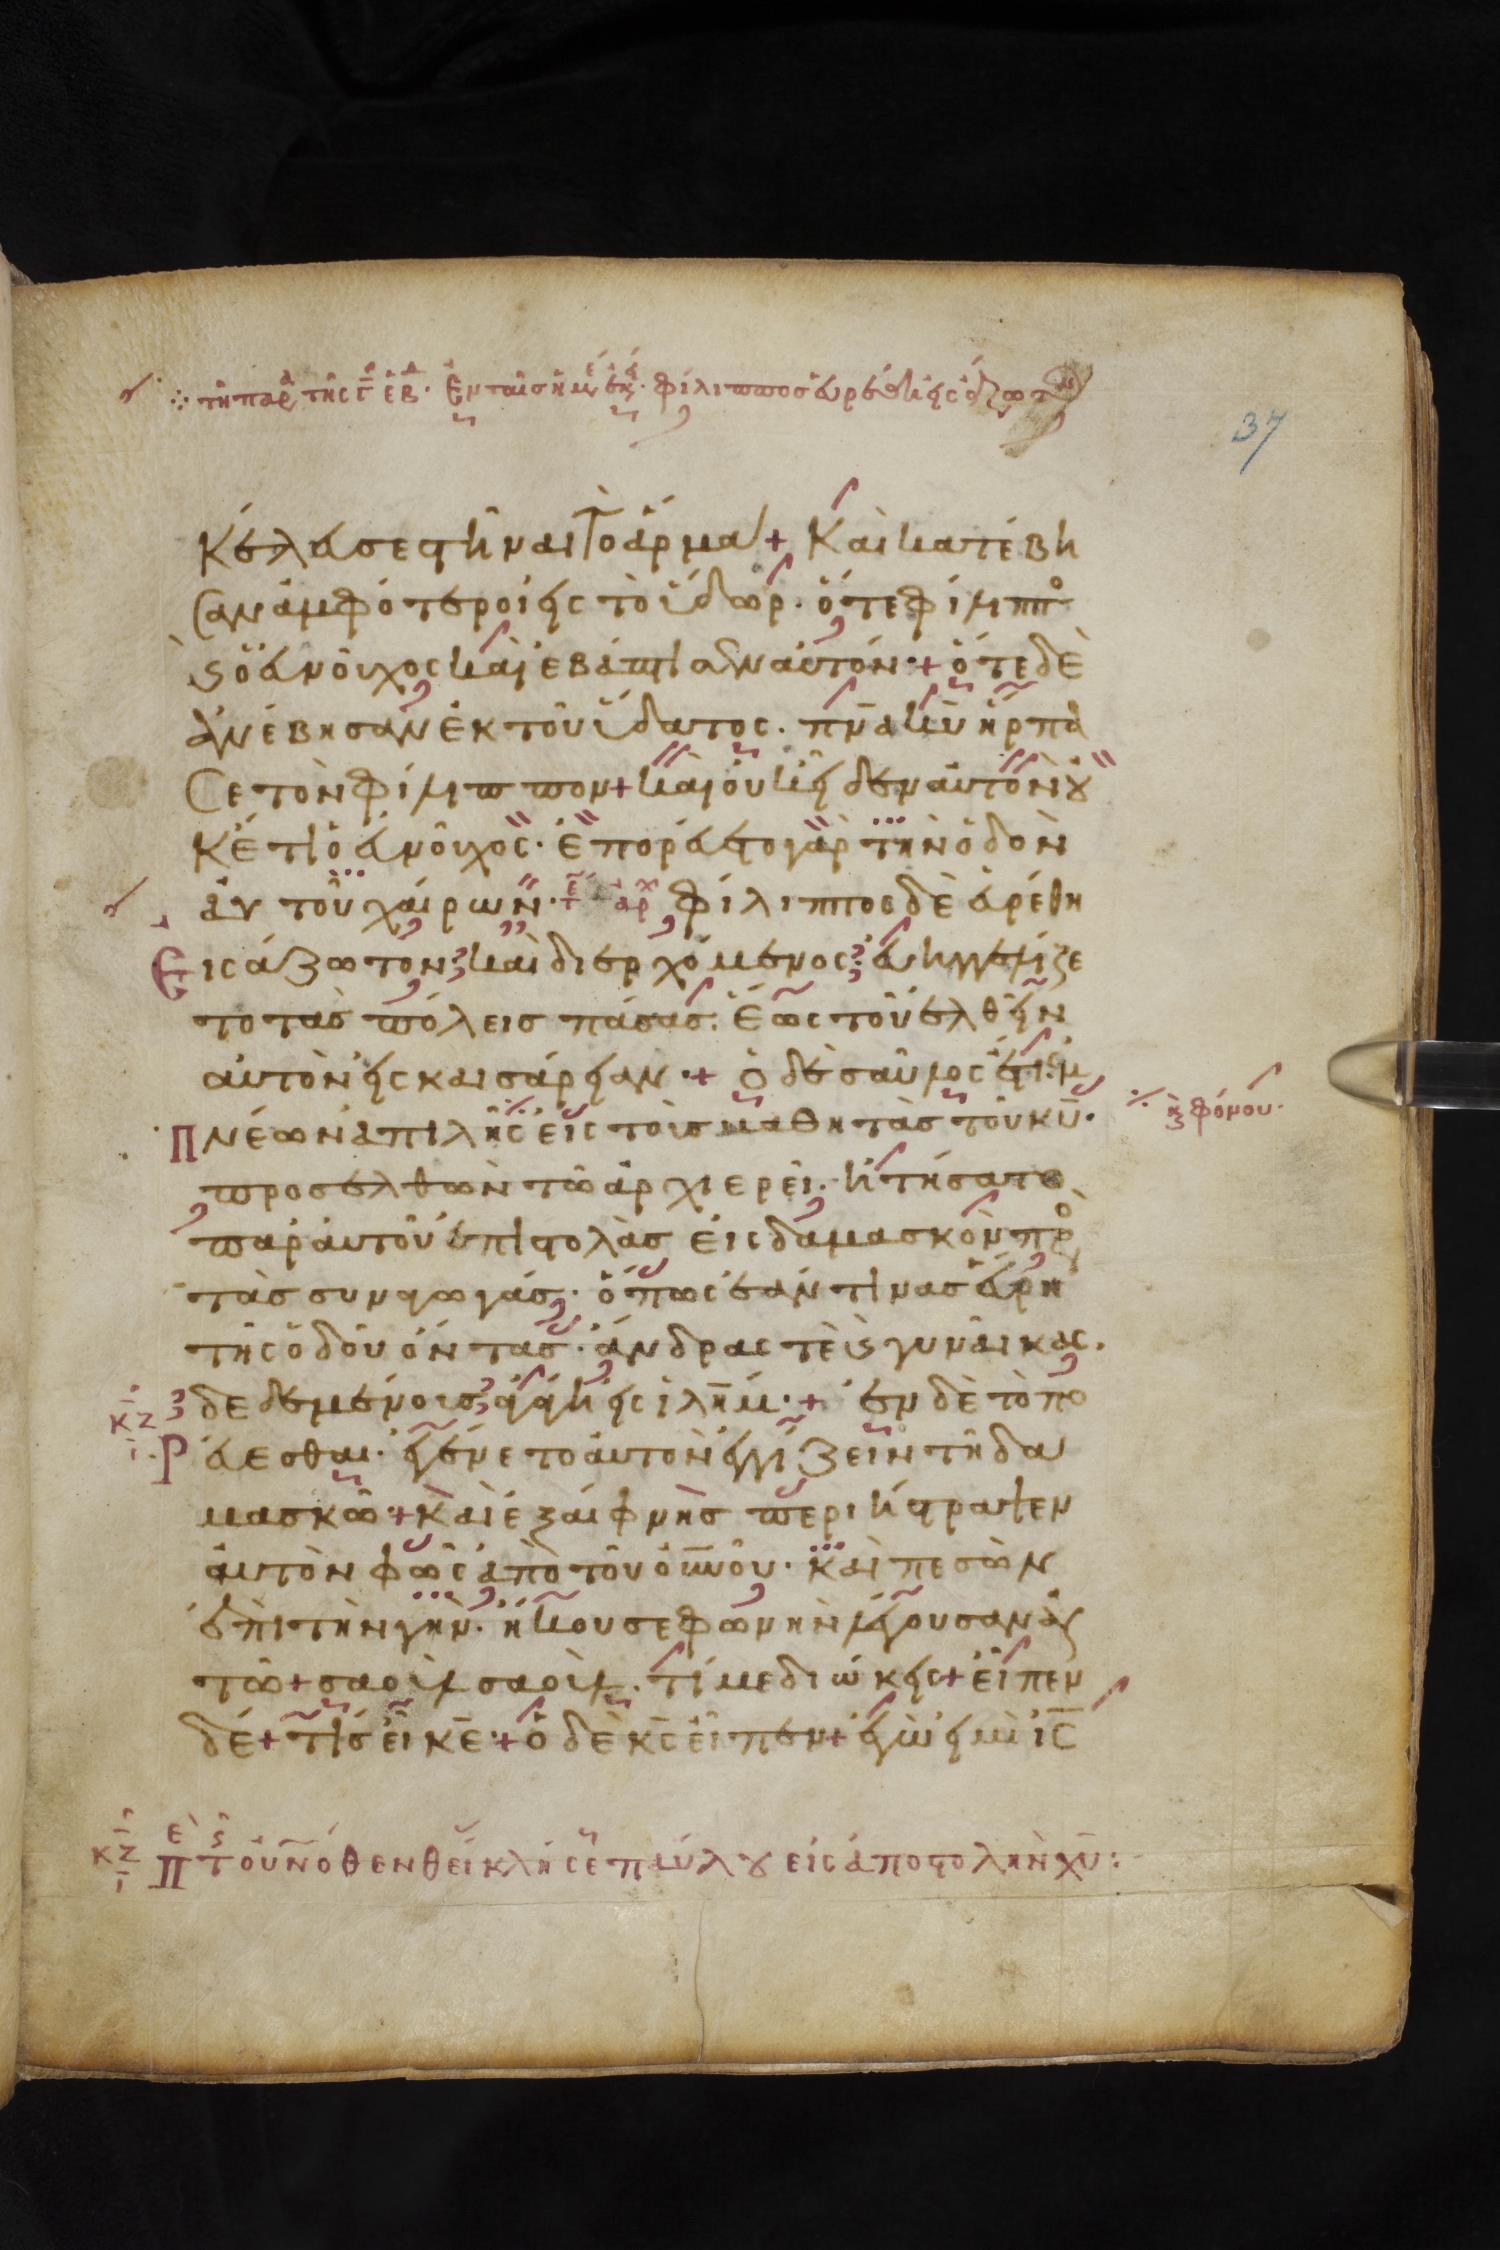 τῆ παρ τῆς γ ἑβδ· Ἐν ταῖς ἡμ ἐκ· φίλιππος εὑρέθη εἰς ἄζωτ
37
κέλευσε στῆναι τὸ ἅρμα + Καὶ κατέβη
σαν ἀμφότεροι εἰς τὸ ὕδωρ· ὅτε φίλιππο
ς ὁ εὐνοῦχος καὶ ἐβάπτισεν αὐτόν· + ὅτε δὲ
ἀνέβησαν ἐκ τοῦ ὕδατος· πν̅α κυ̅ ἥρπα
σε τὸν φίλιππον + καὶ οὐκ εἶδεν αὐτὸν ὀυ
κέτι ὁ εὐνοῦχος· ἐπορεύετο γὰρ τὴν ὁδὸν
αὐτοῦ χαίρων· τε αρχ φίλιππος δὲ εὑρέθη
Εἰς ἄζωτον· καὶ διερχόμενος· εὐηγγελίζε
το τὰς πόλεις πάσας· ἕως τοῦ ἐλθεῖν
αὐτὸν εἰς καισάρειαν· + ὁ δὲ σαῦλος ἔτι ἐμ
Πνέων ἀπειλῆς εἰς τοὺς μαθητὰς τοῦ κυ̅·
⁒ κ φόνου·
προσελθὼν τῶ ἀρχιερεῖ· ἠτήσατο
παρ αὐτοῦ ἐπιστολὰς εἰς δαμασκὸν πρὸ
τὰς συναγωγάς· ὅπως ἐάν τινας εὕρη
τῆς ὁδοῦ ὄντας· ἄνδρας τὲ κ γυναῖκας·
δεδεμένους ἀγάγη εἰς ιλη̅μ· + ἐν δὲ τὸ πο
κζ
Ρεύεσθαι· ἐγένετο αὐτὸν ἐγγίζειν τῆ δα
μασκῶ· + καὶ ἐξαίφνης περιήστραψεν
αὐτὸν φῶς ἀπὸ τοῦ οὐ̅νοῦ· καὶ πεσὼν
ἐπὶ τὴν γῆν· ἤκουσε φωνὴν λέγουσαν αὐ
τῶ + σαοὺλ σαοὺλ· τί με διώκεις + εἶπεν
δέ + τίς εἶ κε̅· + ὁ δὲ κς̅ εἶπεν + ἐγώ εἰμὶ ις̅
κζ Πε ς τοῦ οὐνόθεν θείκλήσε παύλου εἰς ἀποστολὴν χυ̅: